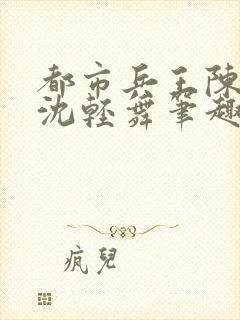 都市兵王陳
沈輕舞筆趣
瘋兒